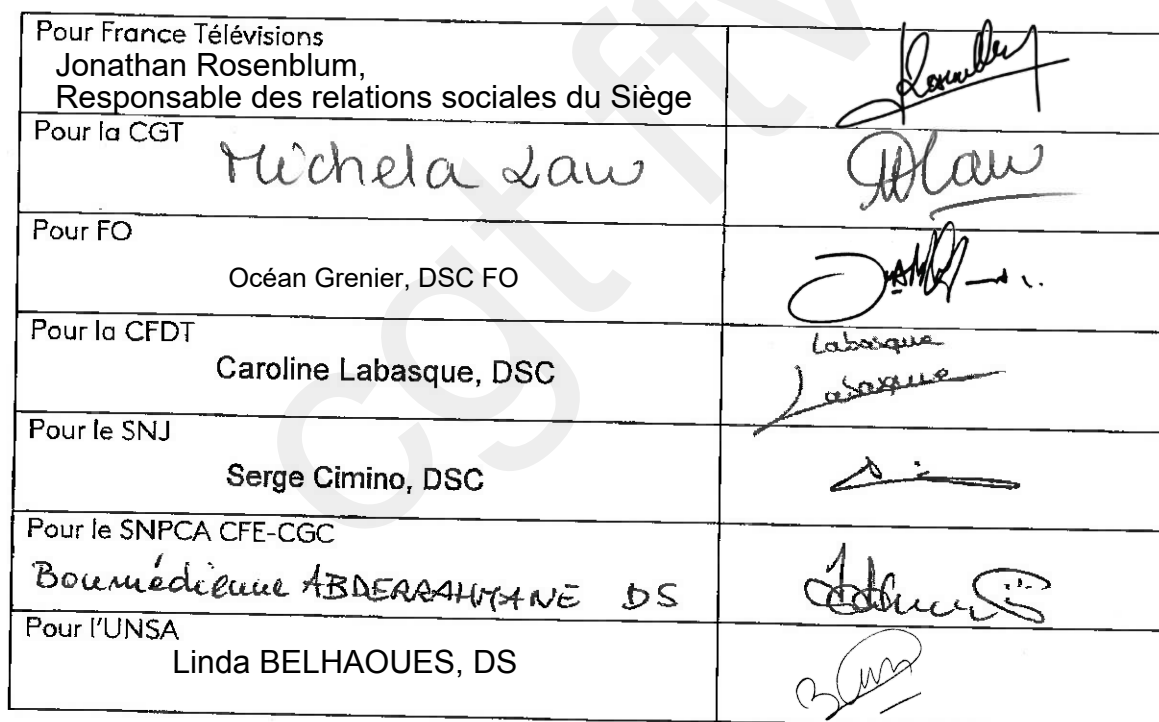 Pour France Télévisions
Jonathan Rosenblum,
Responsable des relations sociales du Siège
Pour la CGT
Michela Law
MLaw
Pour FO
Océan Grenier, DSC FO
Pour la CFDT
Caroline Labasque, DSC
Labasque
Labasque
Pour le SNJ
Serge Cimino, DSC
Pour le SNPCA CFE-CGC
Boumédienne ABDERRAHMANE DS
Pour l'UNSA
Linda BELHAOUES, DS
cgt ftv